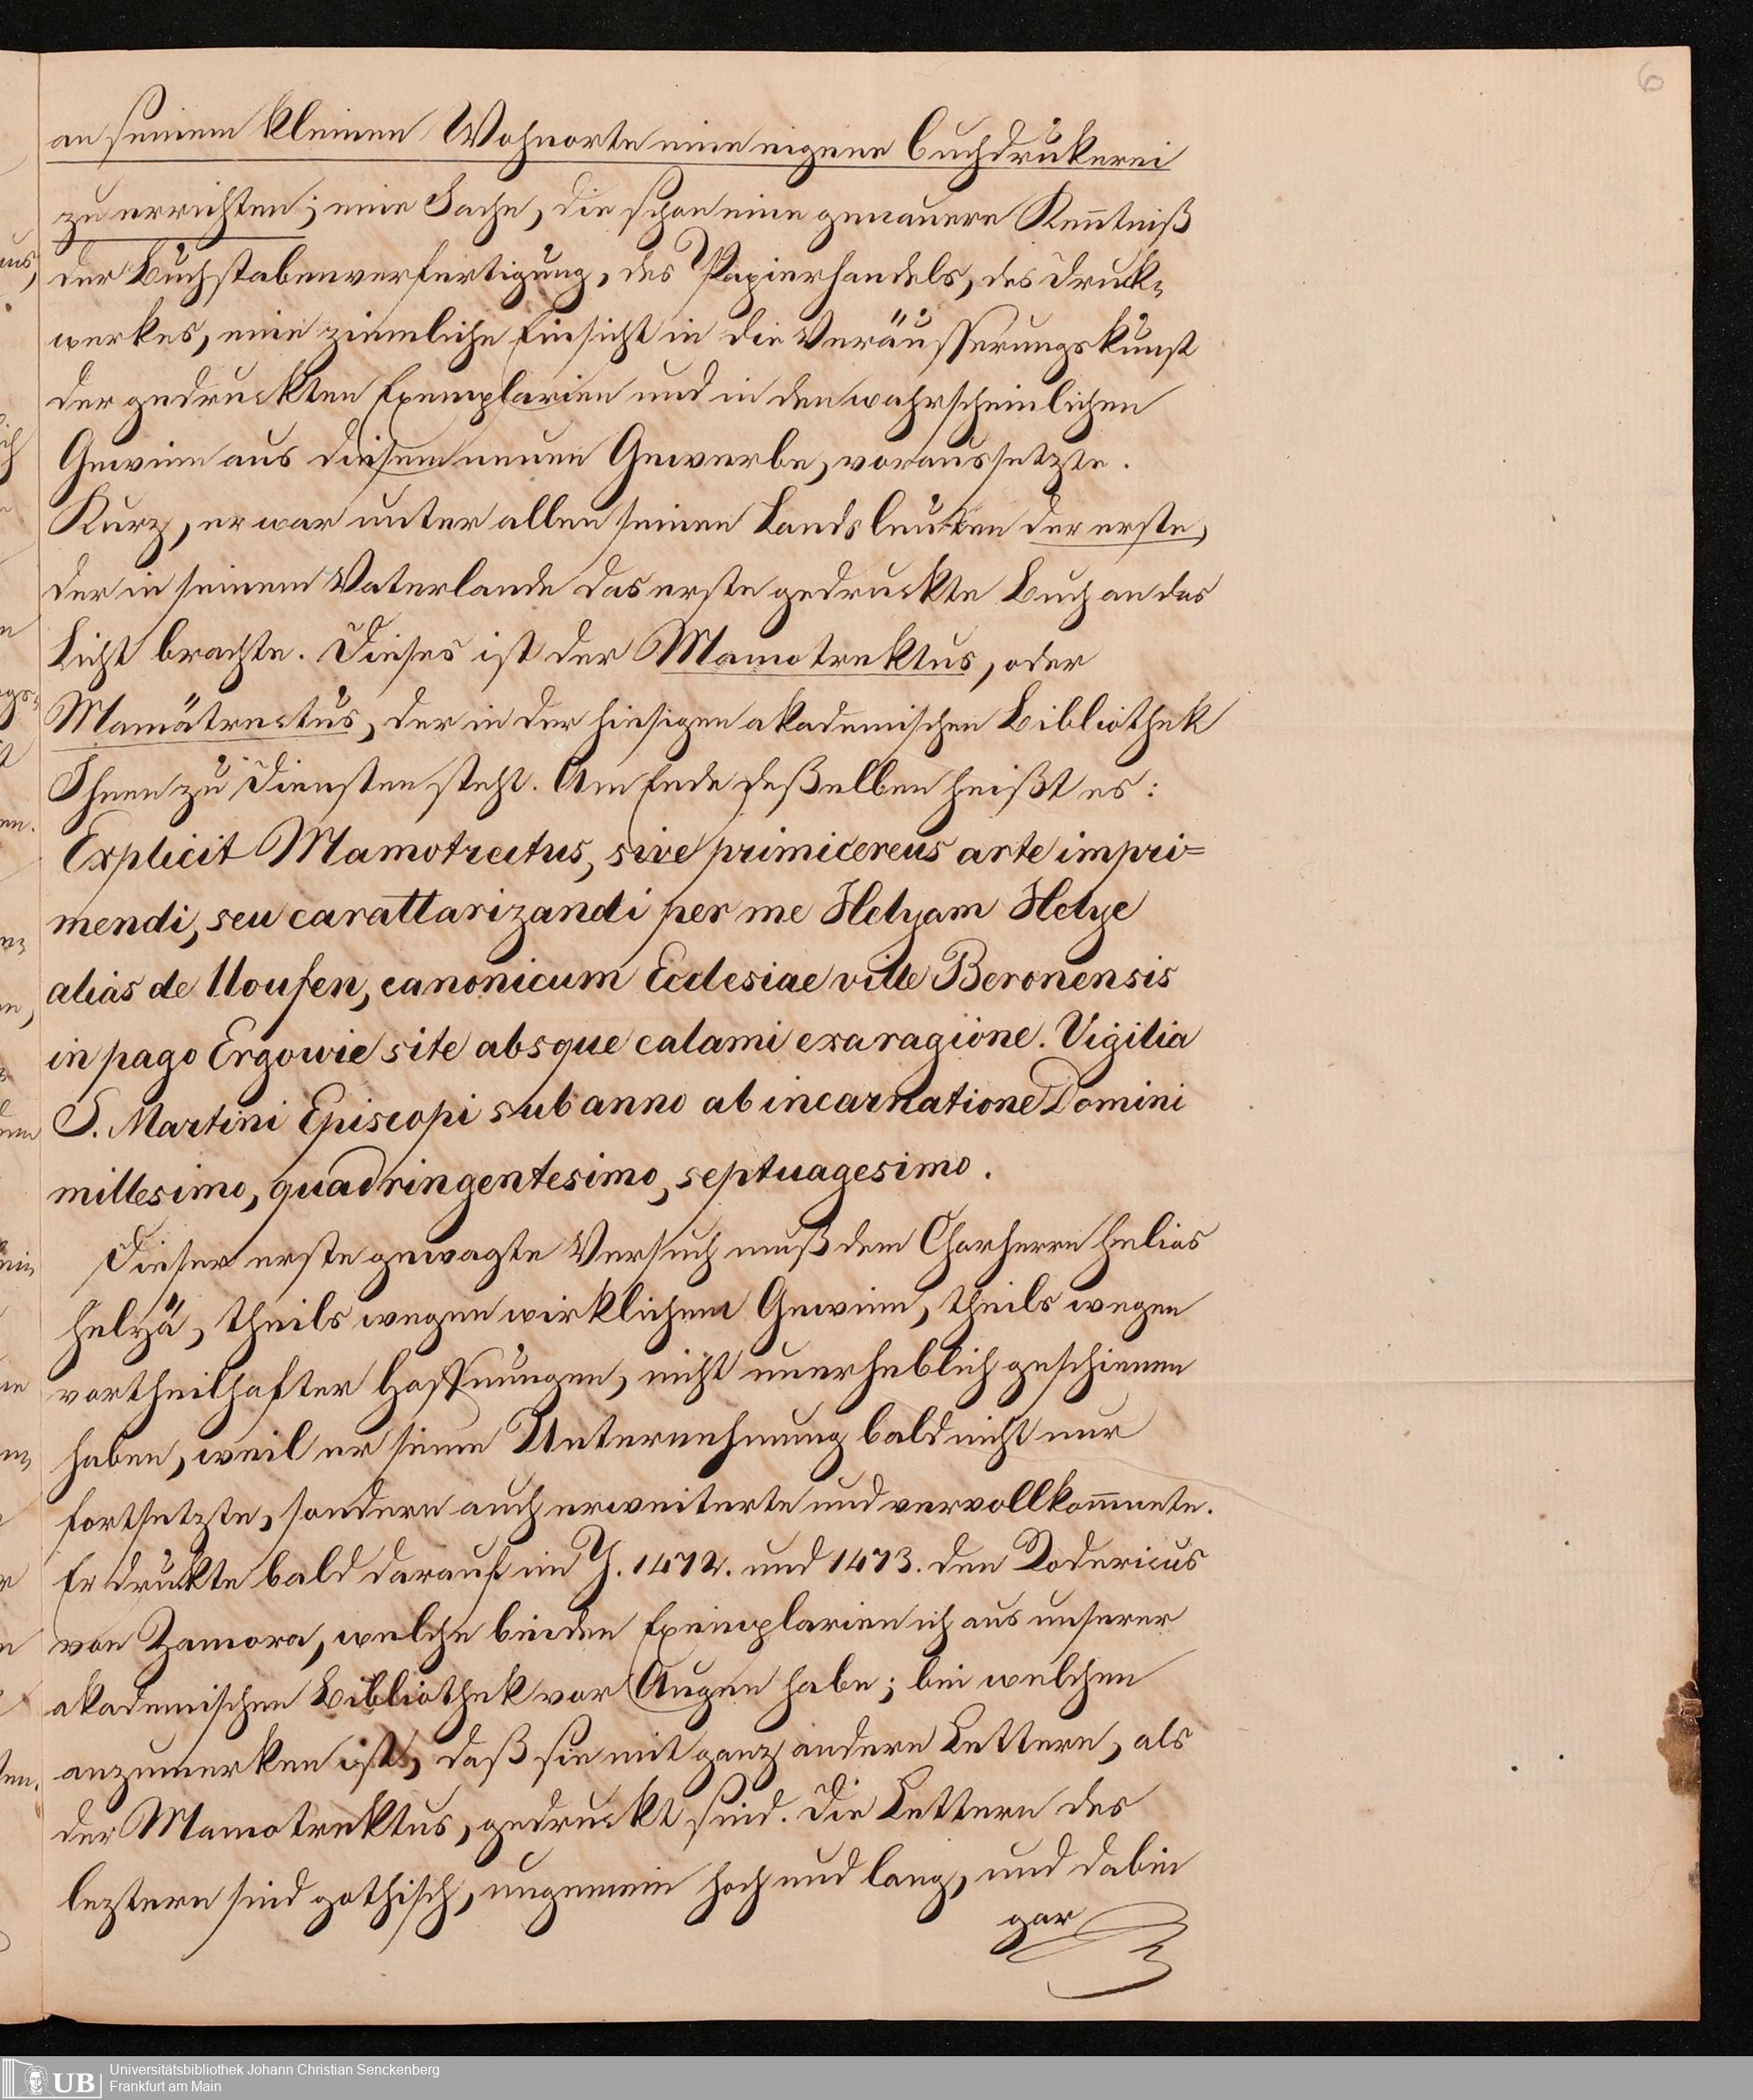 6
an seinem kleinen Wohnorte eine eigene Buchdrukerei
zu errichten; eine Sache, die schon eine genauere Kenntniß
der Buchstabenverfertigung, des Papierhandels, des Druck-
werkes, eine ziemliche Einsicht in die Veräusserungskunst
der gedruckten Exemplarien und in den wahrscheinlichen
Gewinn aus diesem neuen Gewerbe, voraussetzte.
Kurz, er war unter allen seinen Landsleuten der erste,
der in seinem Vaterlande das erste gedruckte Buch an das
Licht brachte. Dieses ist der Mamotrektus, oder
Mamätrectus, der in der hiesigen akademischen Bibliothek
Ihnen zu Diensten steht. Am Ende deßelben heißt es:
Explicit Mamotrectus, sive primicereus arte impri=
mendi, seu carattarizandi per me Helyam Helye
alias de Lloufen, canonicum Ecclesiae ville Beronensis
in pago Ergowie site absque calami exaragione. Vigilia
S. Martini Episcopi sub anno ab incarnatione Domini
millesimo, quadringentesimo, septuagesimo.
Dieser erste gewagte Versuch muß dem Chorherrn Helias
Helyä, theils wegen wirklichem Gewinn, theils wegen
vortheilhafter Hoffnungen, nicht unerheblich geschienen
haben, weil er seine Unternehmung bald nicht nur
fortsetzte, sondern auch erweiterte und vervollkommnete.
Er drukte bald darauf im J. 1472. und 1473. den Rodericus
von Zamora, welche beiden Exemplarien ich aus unserer
akademischen Bibliothek vor Augen habe; bei welchen
anzumerken ist, daß sie mit ganz andern Lettern, als
der Mamotrektus, gedruckt sind. Die Lettern des
leztern sind gothisch, ungemein hoch und lang, und dabei
gar
UB Universitätsbibliothek Johann Christian Senckenberg
Frankfurt am Main